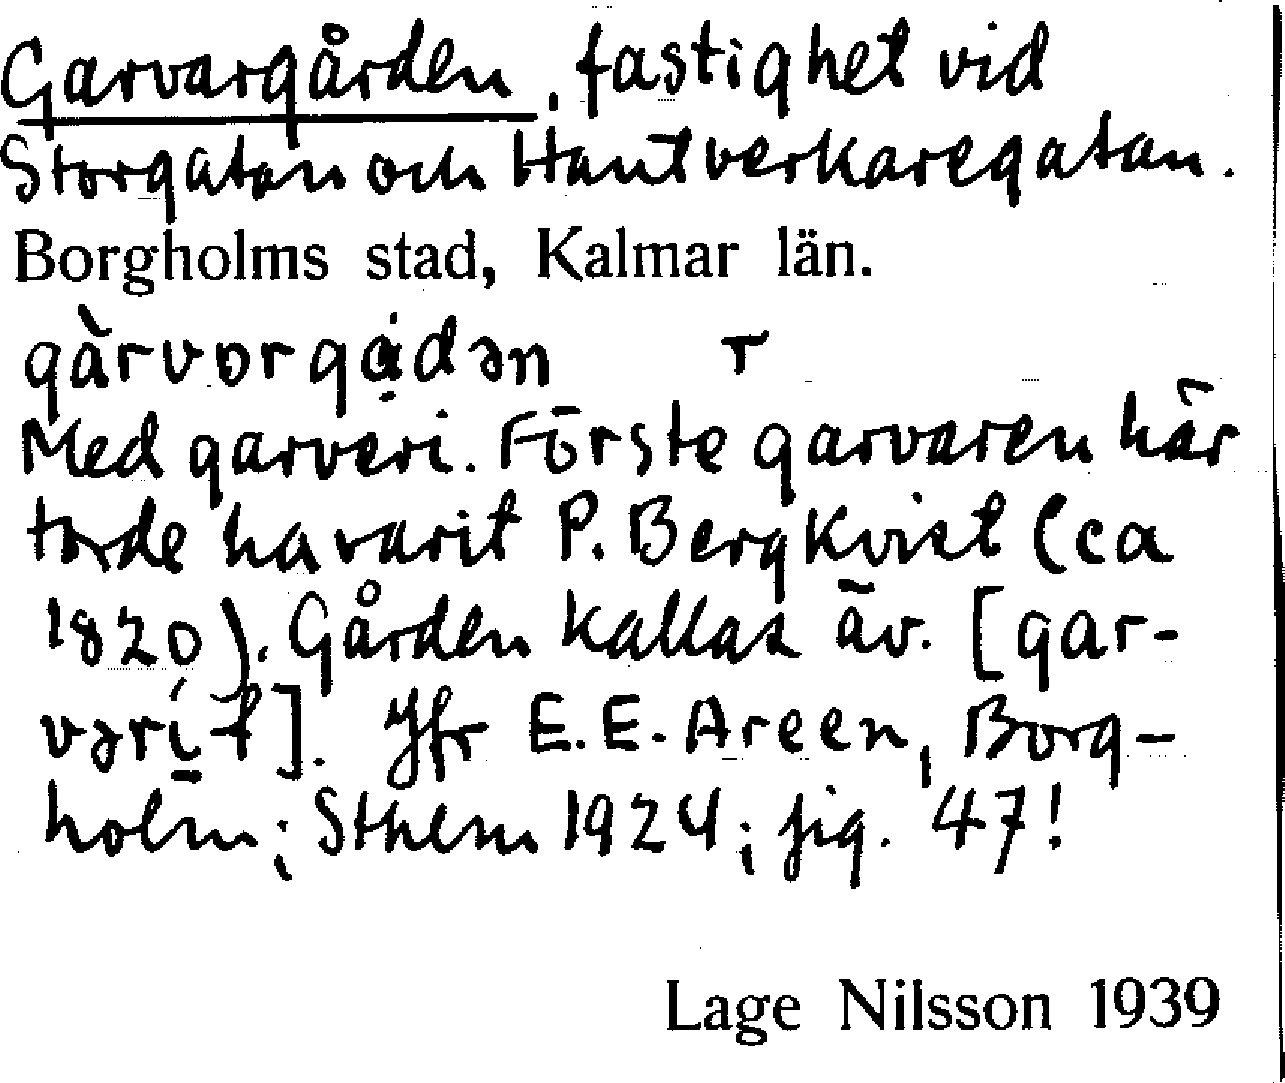 Garvargården, fastighet vid
Storgatan och Hantverkaregatan.
Borgholms stad, Kalmar län.
gàrvorgạ́dən r
Med garveri. Förste garvaren här
torde ha varit P. Bergkvist (ca
1820). Gården kallas äv. [gar-
vərí̱t]. Jfr E.E. Areen, Borg-
holm; Sthlm 1924; fig. 47!
Lage Nilsson 1939